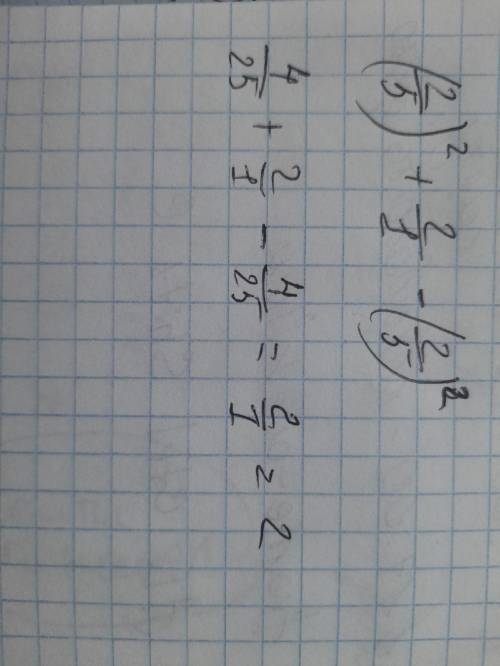 (2/5)² + 2/1 - (2/5)²
4/25 + 2/1 - 4/25 = 2/1 = 2